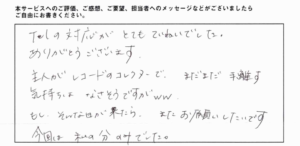 本サービスへのご評価、ご感想、ご要望、担当者へのメッセージなどがございましたら
ご自由にお書きください。
Telの対応が とてもていねいでした。
ありがとうございます
主人がレコードのコレクターで、まだまだ手離す
気持ちは なさそうですがww
もし、そんな日が来たら、またお願いしたいです
今回は 私の分のみでした。